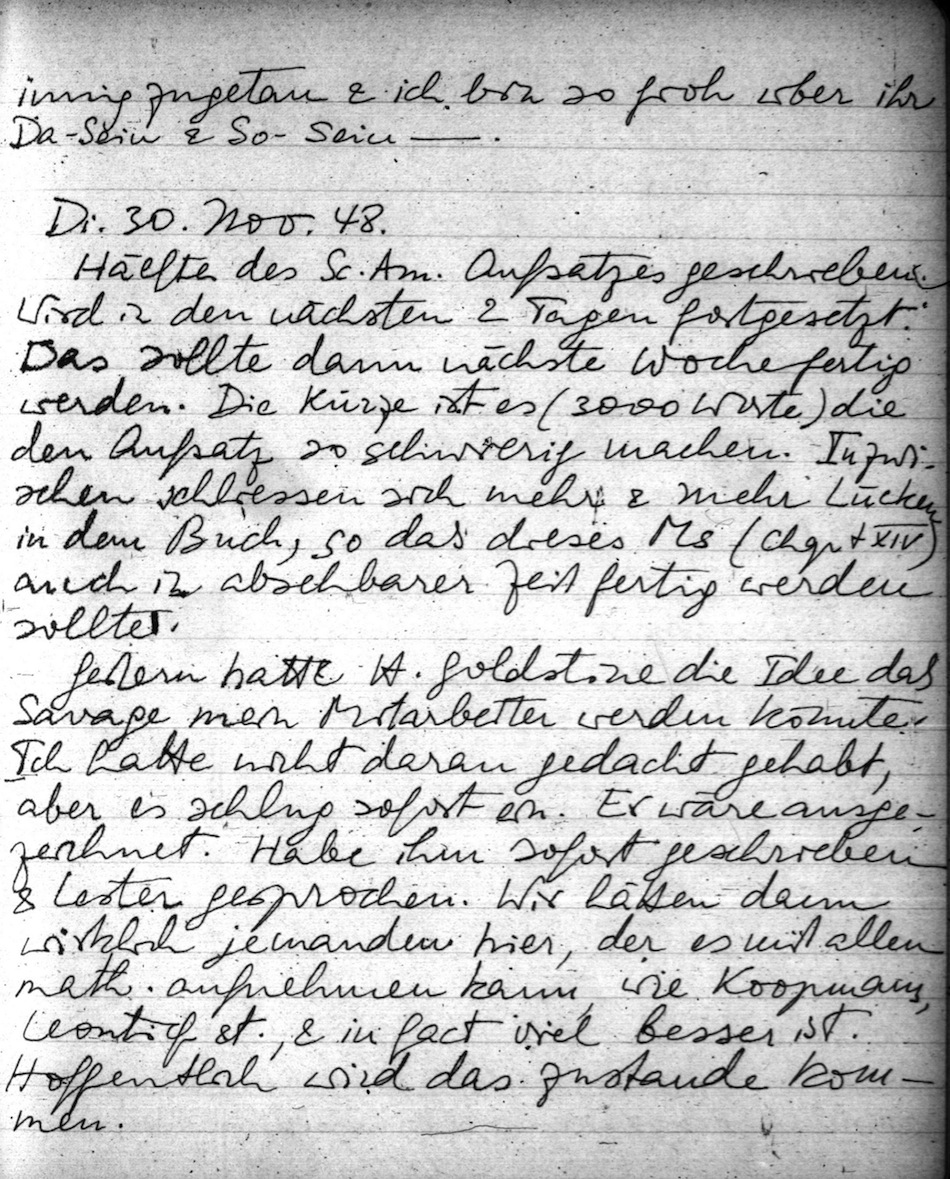 innig zugetan & ich bin so froh über ihr
Da-Sein & So-Sein —.
Di. 30. Nov. 48.
Hälfte des Sc. Am. Aufsatzes geschrieben.
Wird in den nächsten 2 Tagen fortgesetzt.
Das sollte dann nächste Woche fertig
werden. Die Kürze ist es (3000 Worte) die
den Aufsatz so schwierig machen. Inzwi-
schen schliessen sich mehr & mehr Lücken
in dem Buch, so das dieses Ms (Chapt XIV)
auch in absehbarer Zeit fertig werden
sollte.
Gestern hatte H. Goldstine die Idee das
Savage mein Mitarbeiter werden könnte.
Ich hatte nicht daran gedacht gehabt,
aber es schlug sofort ein. Er wäre ausge-
zeichnet. Habe ihm sofort geschrieben
& Lester gesprochen. Wir hätten dann
wirklich jemanden hier, der es mit allen
math. aufnehmen kann, wie Koopmans,
Leontief et., & in fact viel besser ist.
Hoffentlich wird das zustande kom-
men.